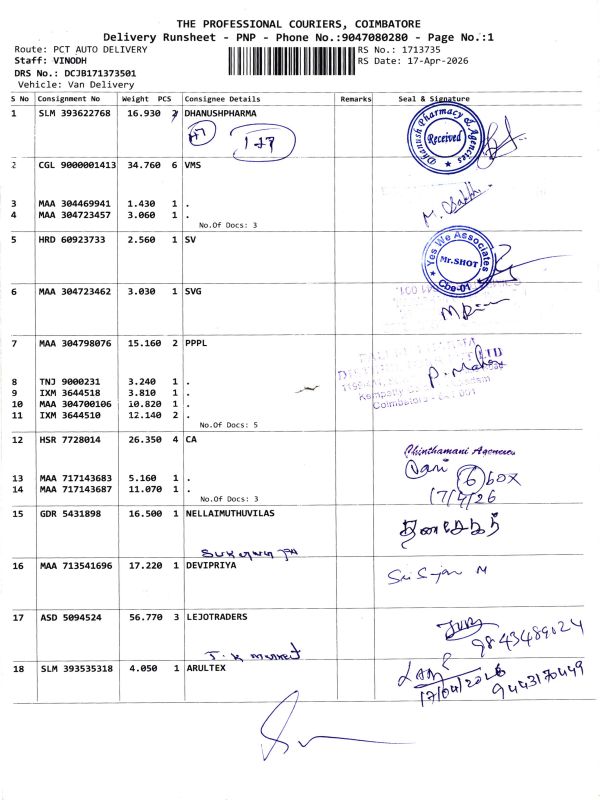 THE PROFESSIONAL COURIERS, COIMBATORE
Delivery Runsheet - PNP - Phone No.:9047080280 - Page No.:1
Route: PCT AUTO DELIVERY RS No.: 1713735
Staff: VINODH RS Date: 17-Apr-2026
DRS No.: DCJB171373501
Vehicle: Van Delivery
S No Consignment No Weight PCS Consignee Details Remarks Seal & Signature
1 SLM 393622768 16.930 2 DHANUSHPHARMA
Dhanush Pharmacy & Agencies
Received
2 CGL 9000001413 34.760 6 VMS
3 MAA 304469941 1.430 1 .
4 MAA 304723457 3.060 1 .
No.Of Docs: 3
5 HRD 60923733 2.560 1 SV
Yes We Associates
Mr.SHOT
Cbe-01
6 MAA 304723462 3.030 1 SVG
7 MAA 304798076 15.160 2 PPPL
8 TNJ 9000231 3.240 1 .
9 IXM 3644518 3.810 1 .
10 MAA 304700106 10.820 1 .
11 IXM 3644510 12.140 2 .
No.Of Docs: 5
Coimbatore - 641 001
12 HSR 7728014 26.350 4 CA
Chinthamani Agencies
Vani 6 box
17/4/26
13 MAA 717143683 5.160 1 .
14 MAA 717143687 11.070 1 .
No.Of Docs: 3
15 GDR 5431898 16.500 1 NELLAIMUTHUVILAS
16 MAA 713541696 17.220 1 DEVIPRIYA
17 ASD 5094524 56.770 3 LEJOTRADERS
9843489024
T.K market
18 SLM 393535318 4.050 1 ARULTEX
17/04/2026 9443170449